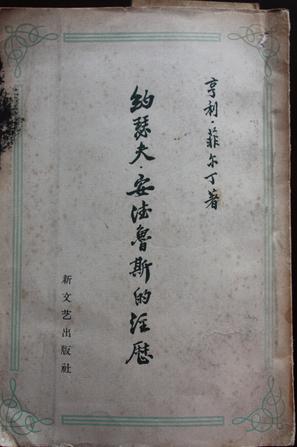 亨利·菲尔丁著
约瑟夫·安德鲁斯的经历
新文艺出版社